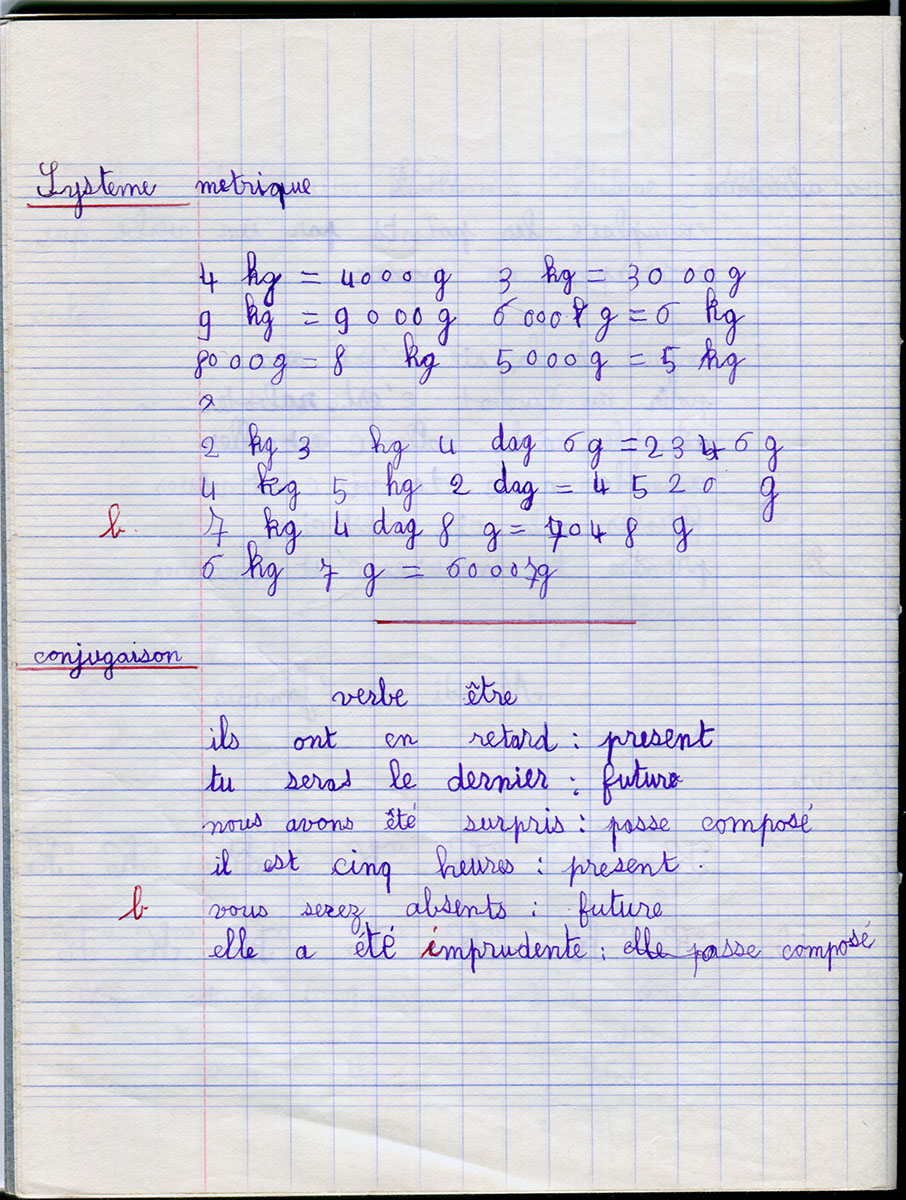 Systeme metrique
4 kg = 4000 g 3 kg = 3000 g
9 kg = 9000 g 6000 g = 6 kg
8000 g = 8 kg 5000 g = 5 kg
2 kg 3 hg 4 dag 6 g = 2346 g
4 kg 5 hg 2 dag = 4520 g
b. 7 kg 4 dag 8 g = 7048 g
6 kg 7 g = 60007g
conjugaison
verbe être
ils ont en retard : present
tu seras le dernier : future
nous avons été surpris : passe composé
il est cinq heures : present .
b vous serez absents : future
elle a été imprudente : elle passe composé